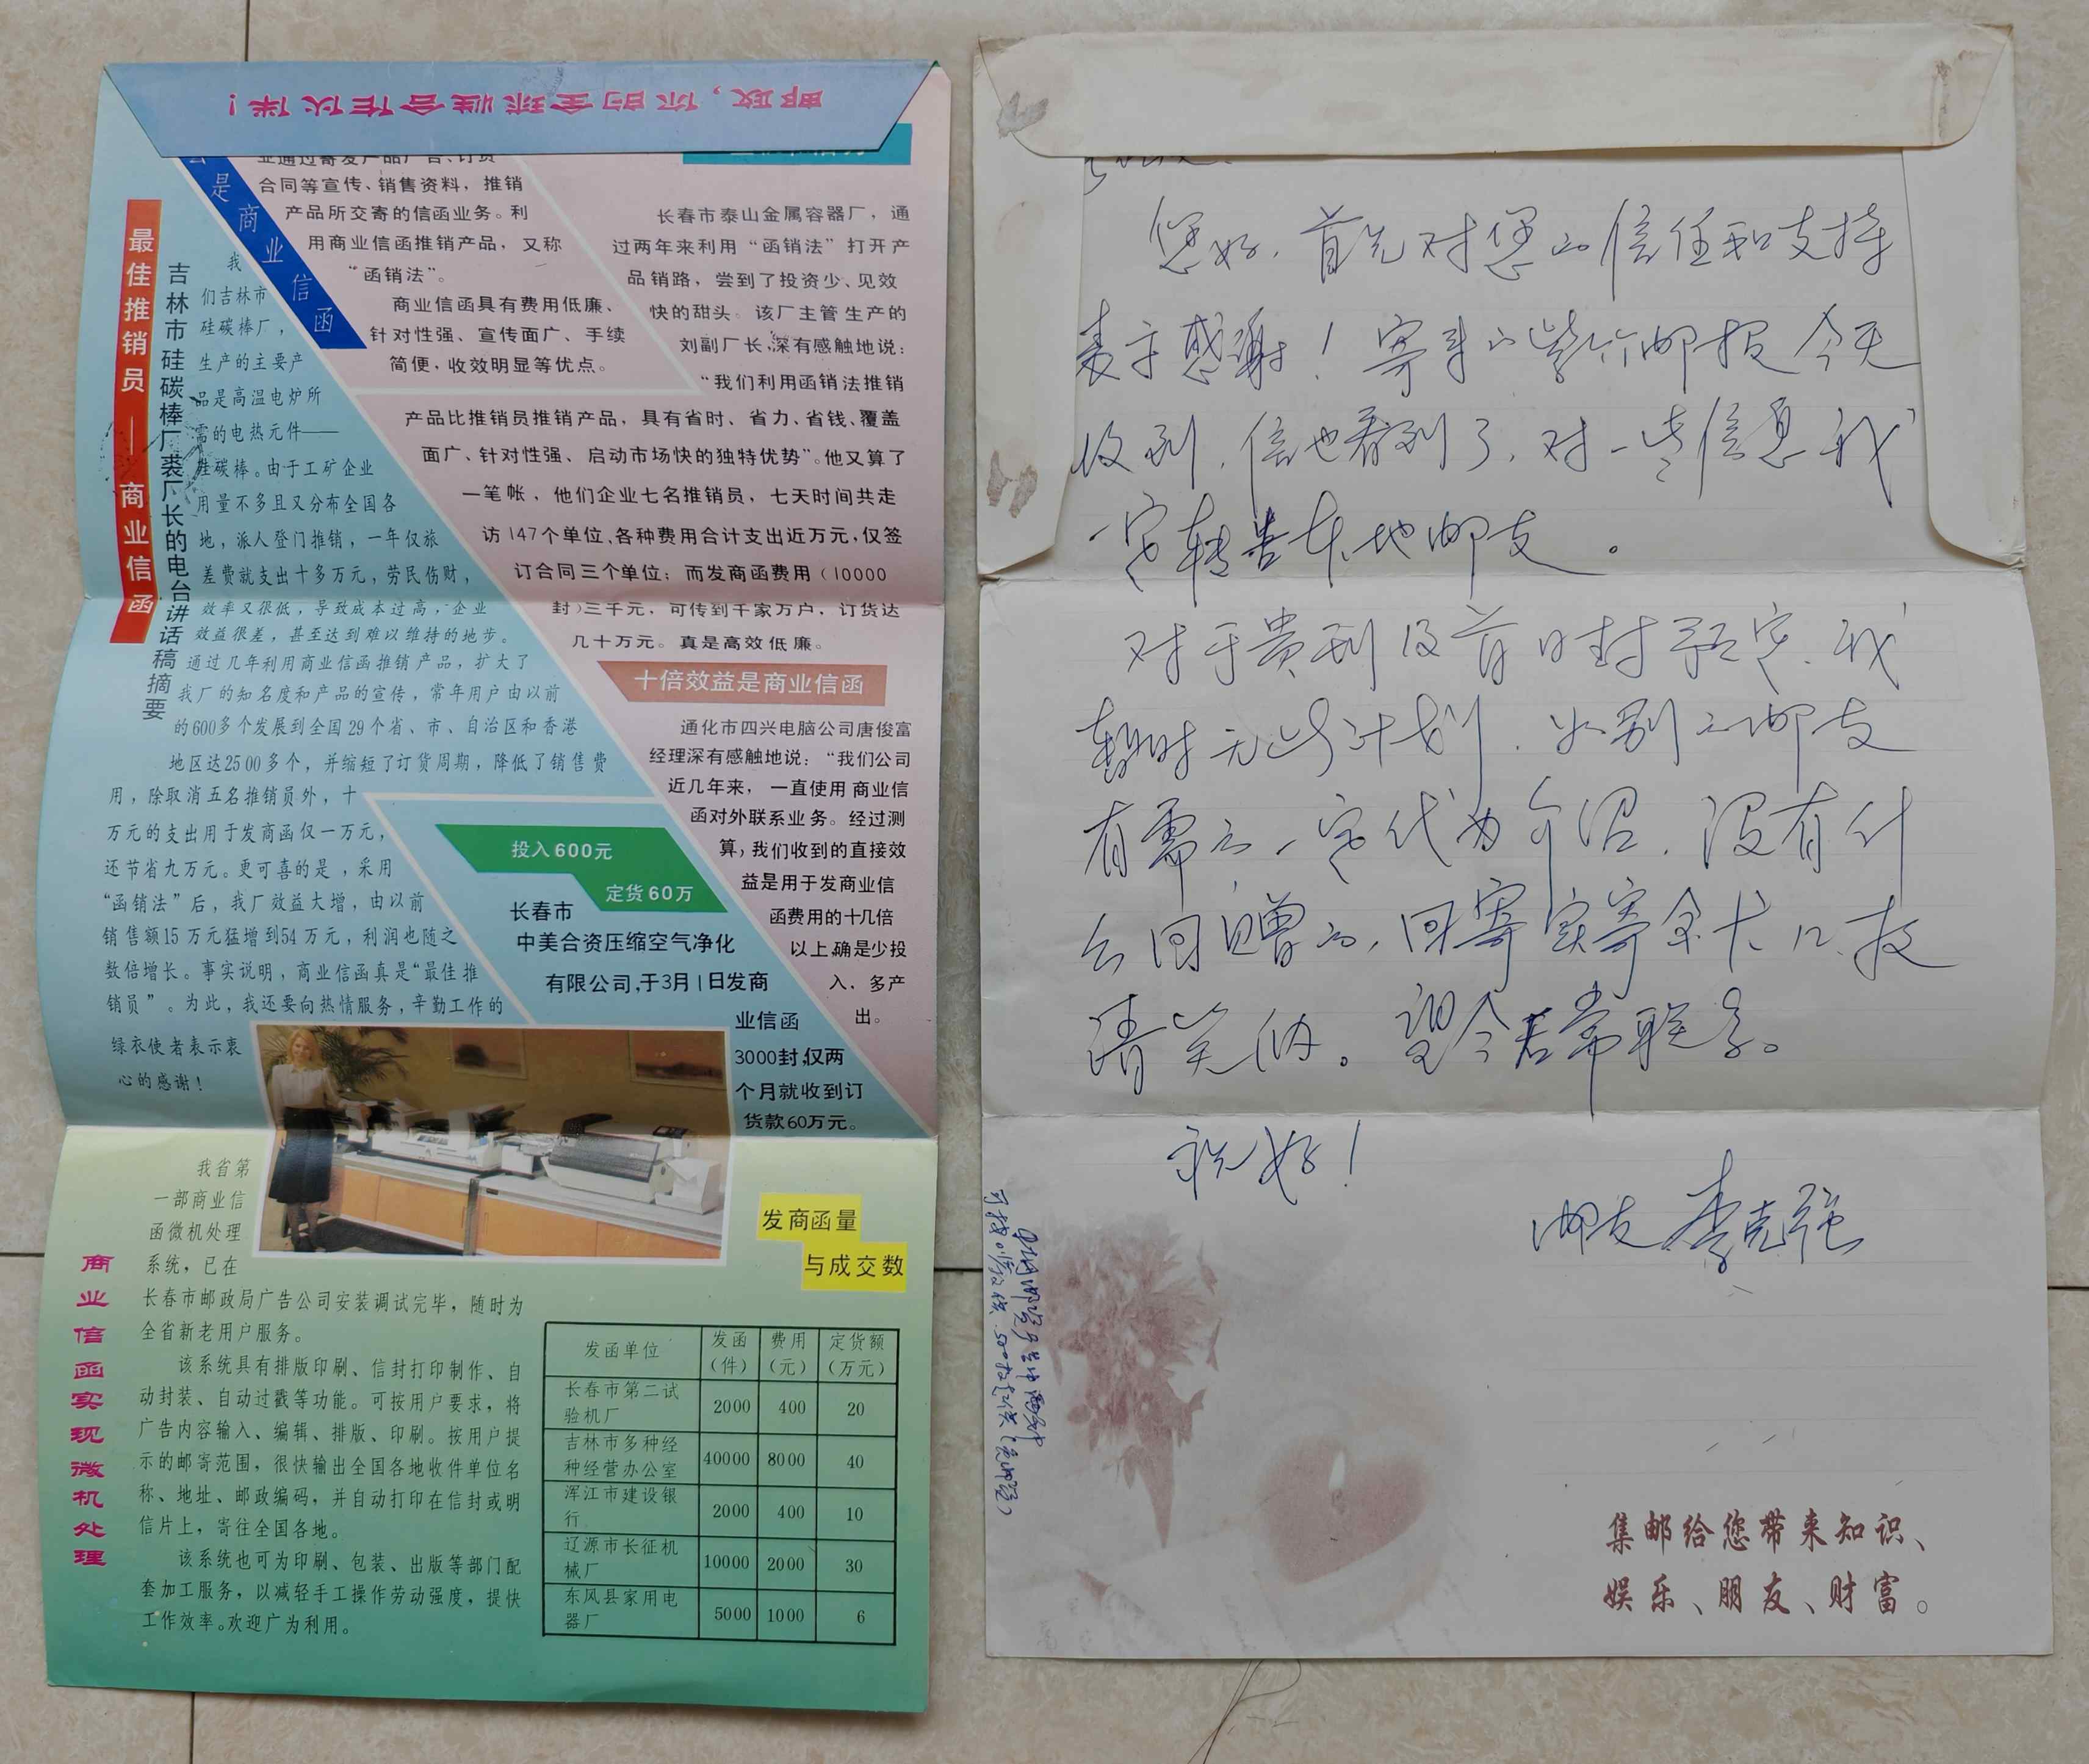 邮政，你的全球性合作伙伴！
是商业信函
业通过寄发产品广告、订货
合同等宣传、销售资料，推销
产品所交寄的信函业务。利
用商业信函推销产品，又称
“函销法”。
商业信函具有费用低廉、
针对性强、宣传面广、手续
简便，收效明显等优点。
长春市泰山金属容器厂，通
过两年来利用“函销法”打开产
品销路，尝到了投资少、见效
快的甜头。该厂主管生产的
刘副厂长，深有感触地说：
“我们利用函销法推销
产品比推销员推销产品，具有省时、省力、省钱、覆盖
面广、针对性强、启动市场快的独特优势”。他又算了
一笔帐，他们企业七名推销员，七天时间共走
访147个单位、各种费用合计支出近万元，仅签
订合同三个单位；而发商函费用（10000
封）三千元，可传到千家万户，订货达
几十万元。真是高效低廉。
最佳推销员——商业信函
吉林市硅碳棒厂裘厂长的电台讲话稿摘要
我
们吉林市
硅碳棒厂，
生产的主要产
品是高温电炉所
需的电热元件——
硅碳棒。由于工矿企业
用量不多且又分布全国各
地，派人登门推销，一年仅旅
差费就支出十多万元，劳民伤财，
效率又很低，导致成本过高，企业
效益很差，甚至达到难以维持的地步。
通过几年利用商业信函推销产品，扩大了
我厂的知名度和产品的宣传，常年用户由以前
的600多个发展到全国29个省、市、自治区和香港
地区达2500多个，并缩短了订货周期，降低了销售费
用，除取消五名推销员外，十
万元的支出用于发商函仅一万元，
还节省九万元。更可喜的是，采用
“函销法”后，我厂效益大增，由以前
销售额15万元猛增到54万元，利润也随之
数倍增长。事实说明，商业信函真是“最佳推
销员”。为此，我还要向热情服务，辛勤工作的
绿衣使者表示衷
心的感谢！
十倍效益是商业信函
通化市四兴电脑公司唐俊富
经理深有感触地说：“我们公司
近几年来，一直使用商业信
函对外联系业务。经过测
算，我们收到的直接效
益是用于发商业信
函费用的十几倍
以上，确是少投
入、多产
出。
投入600元
定货60万
长春市
中美合资压缩空气净化
有限公司，于3月1日发商
业信函
3000封，仅两
个月就收到订
货款60万元。
商业信函实现微机处理
我省第
一部商业信
函微机处理
系统，已在
长春市邮政局广告公司安装调试完毕，随时为
全省新老用户服务。
该系统具有排版印刷、信封打印制作、自
动封装、自动过戳等功能。可按用户要求，将
广告内容输入、编辑、排版、印刷。按用户提
示的邮寄范围，很快输出全国各地收件单位名
称、地址、邮政编码，并自动打印在信封或明
信片上，寄往全国各地。
该系统也可为印刷、包装、出版等部门配
套加工服务，以减轻手工操作劳动强度，提快
工作效率。欢迎广为利用。
发商函量
与成交数
发函单位 发函（件） 费用（元） 定货额（万元）
长春市第二试验机厂 2000 400 20
吉林市多种经种经营办公室 40000 8000 40
浑江市建设银行 2000 400 10
辽源市长征机械厂 10000 2000 30
东风县家用电器厂 5000 1000 6
您好，首先对您的信任和支持
表示感谢！寄来的紫竹邮报今天
收到，信也看到了，对一些信息我
一定转告本地邮友。
对于贵刊及首日封预定，我
暂时无此计划，如别的邮友
有需的一定代为介绍，没有什
么回赠的，回寄实寄余卡几枚
请笑纳。望今后常联系。
祝好！
邮友 李克强
集邮给您带来知识、
娱乐、朋友、财富。